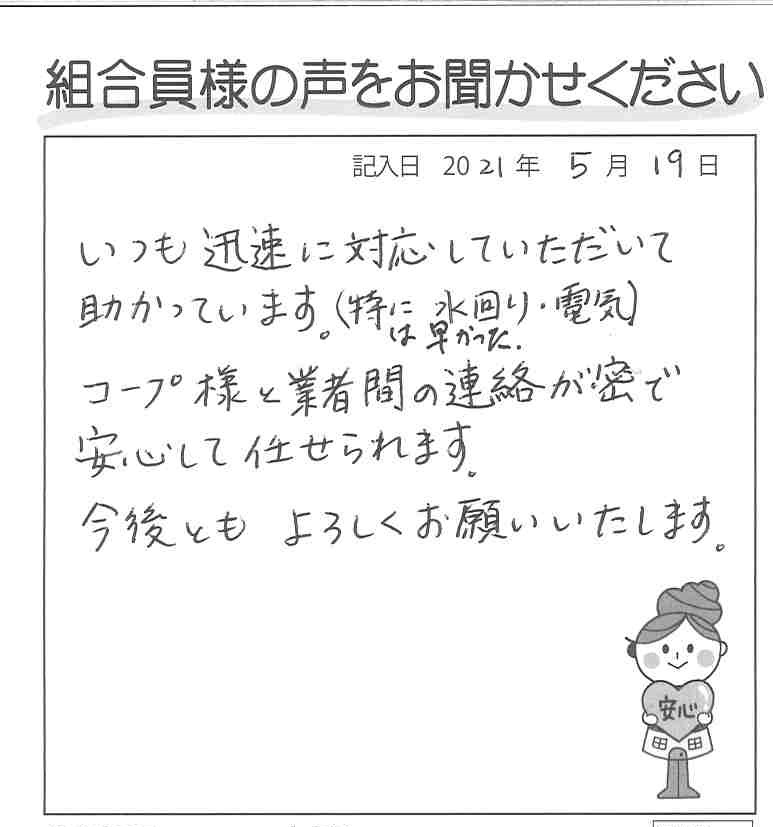 組合員様の声をお聞かせください
記入日 2021年 5月 19日
いつも 迅速に対応していただいて
助かっています。(特に 水回り・電気)
は 早かった.
コープ様と業者間の連絡が密で
安心して任せられます。
今後とも よろしくお願いいたします。
安心